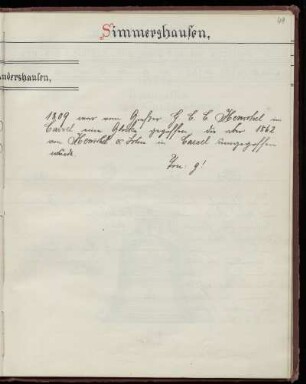 Simmershausen,
andershausen,
1809 war vom Gießer G C C Henschel in
Cassel eine Glocke gegossen, die aber 1862
von Henschel & Sohn in Cassel umgegossen
wurde.